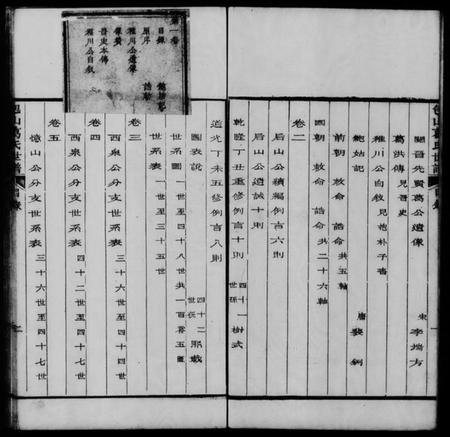 包山葛氏世譜
目錄
晉先賢葛公遺像 宋 李嵩方
葛洪傳見晉史
稚川公自敘見抱朴子書
鮑姑記 唐 裴鉶
前朝敕命誥命共五軸
國朝敕命誥命共二十六軸
卷二
后山公續編例言六則
后山公遺誡十則
乾隆丁丑重修例言十則 四十一世孫 樹式
道光丁未五修例言八則
圖表說 四十二世孫 熙載
世系圖 一世至四十八世共一百零五圖
世系表 一世至三十五世
卷三
西泉公分支世系表 三十六世至四十七世
卷四
西泉公分支世系表 四十二世至四十七世
卷五
憶山公分支世系表 三十六世至四十七世
包山葛氏世譜
目錄
第一卷
目錄
原序
稚川公遺像
像贊
晉史本傳
稚川公自敘